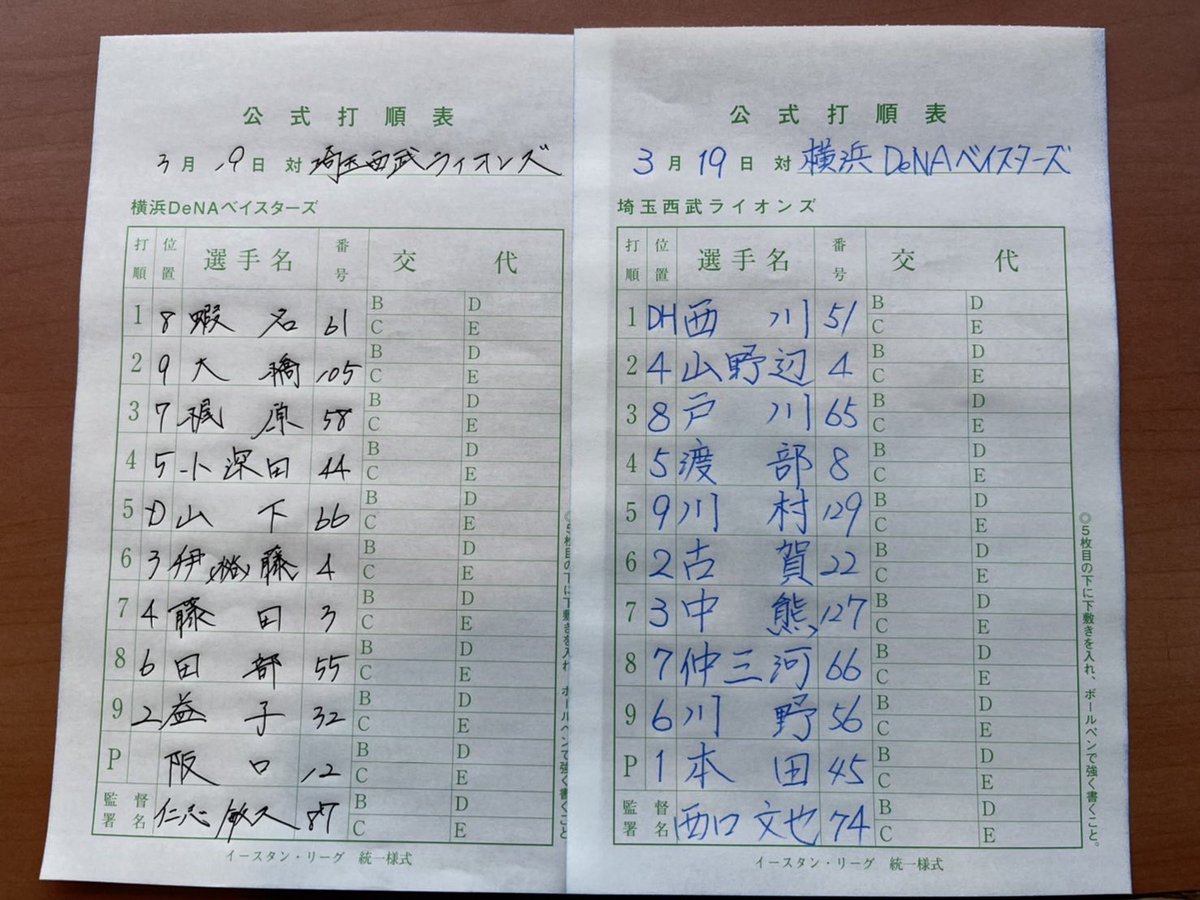 公式打順表
3月19日 対 埼玉西武ライオンズ
横浜DeNAベイスターズ
打順 位置 選手名 番号 交代
1 8 蝦名 61 B D C E
2 9 大橋 105 B D C E
3 7 梶原 58 B D C E
4 5 小深田 44 B D C E
5 D 山下 66 B D C E
6 3 伊藤(裕) 4 B D C E
7 4 藤田 3 B D C E
8 6 田部 55 B D C E
9 2 益子 32 B D C E
P 阪口 12 B D C E
監督署名 仁志敏久 87 B D C E
イースタン・リーグ 統一様式
◎5枚目の下に下敷きを入れ、ボールペンで強く書くこと。
公式打順表
3月19日 対 横浜DeNAベイスターズ
埼玉西武ライオンズ
打順 位置 選手名 番号 交代
1 DH 西川 51 B D C E
2 4 山野辺 4 B D C E
3 8 戸川 65 B D C E
4 5 渡部 8 B D C E
5 9 川村 129 B D C E
6 2 古賀 22 B D C E
7 3 中熊 127 B D C E
8 7 仲三河 66 B D C E
9 6 川野 56 B D C E
P 1 本田 45 B D C E
監督署名 西口文也 74 B D C E
イースタン・リーグ 統一様式
◎5枚目の下に下敷きを入れ、ボールペンで強く書くこと。